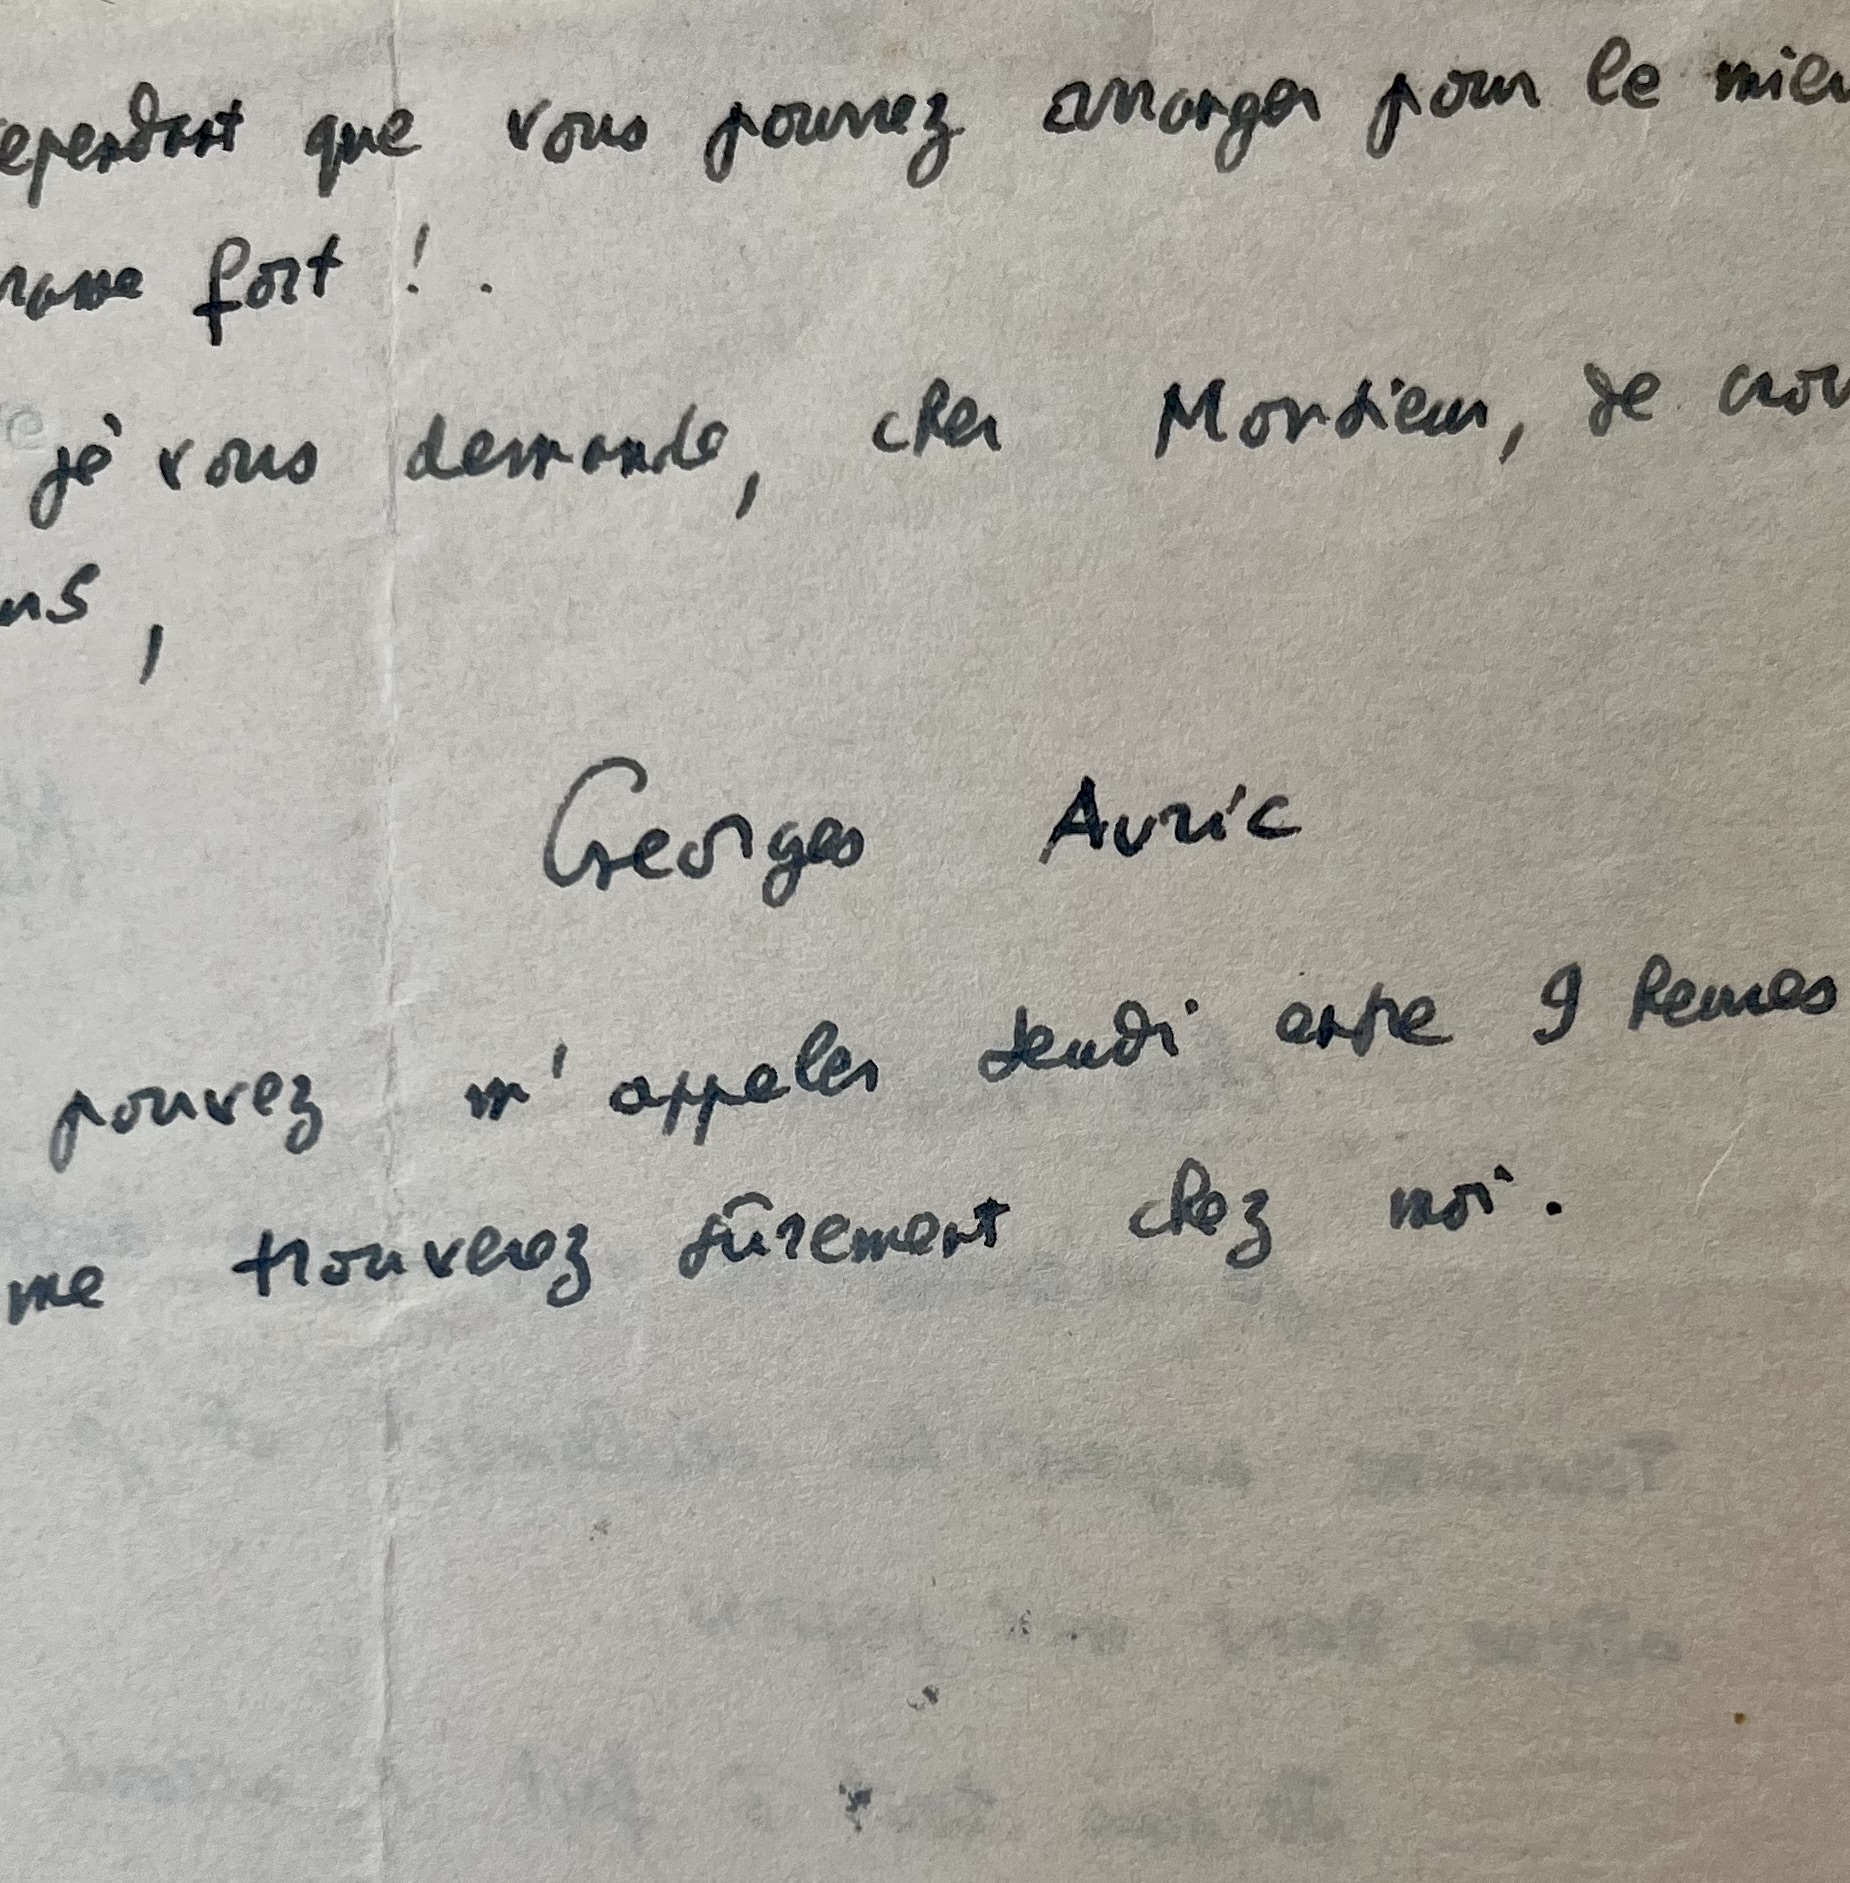 ependant que vous pourrez arranger pour le mieu
fort ! .
je vous demande, cher Monsieur, de croi
ns,
Georges Auric
pouvez m'appeler Jeudi entre 9 heures
me trouverez sûrement chez moi.